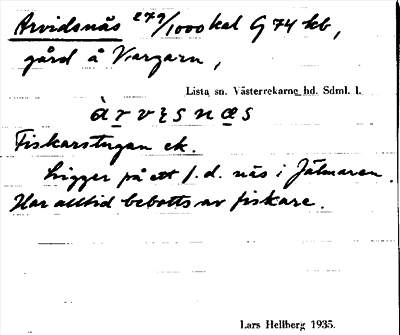 Arvidsnäs 279/1000 kal G 74 kb,
gård å Vargarn,
Lista sn. Västerrekarne hd. Sdml. l.
àrvɩsnæs
Fiskarstugan ek.
Ligger på ett f.d. näs i Jälmaren.
Har alltid bebotts av fiskare.
Lars Hellberg 1935.